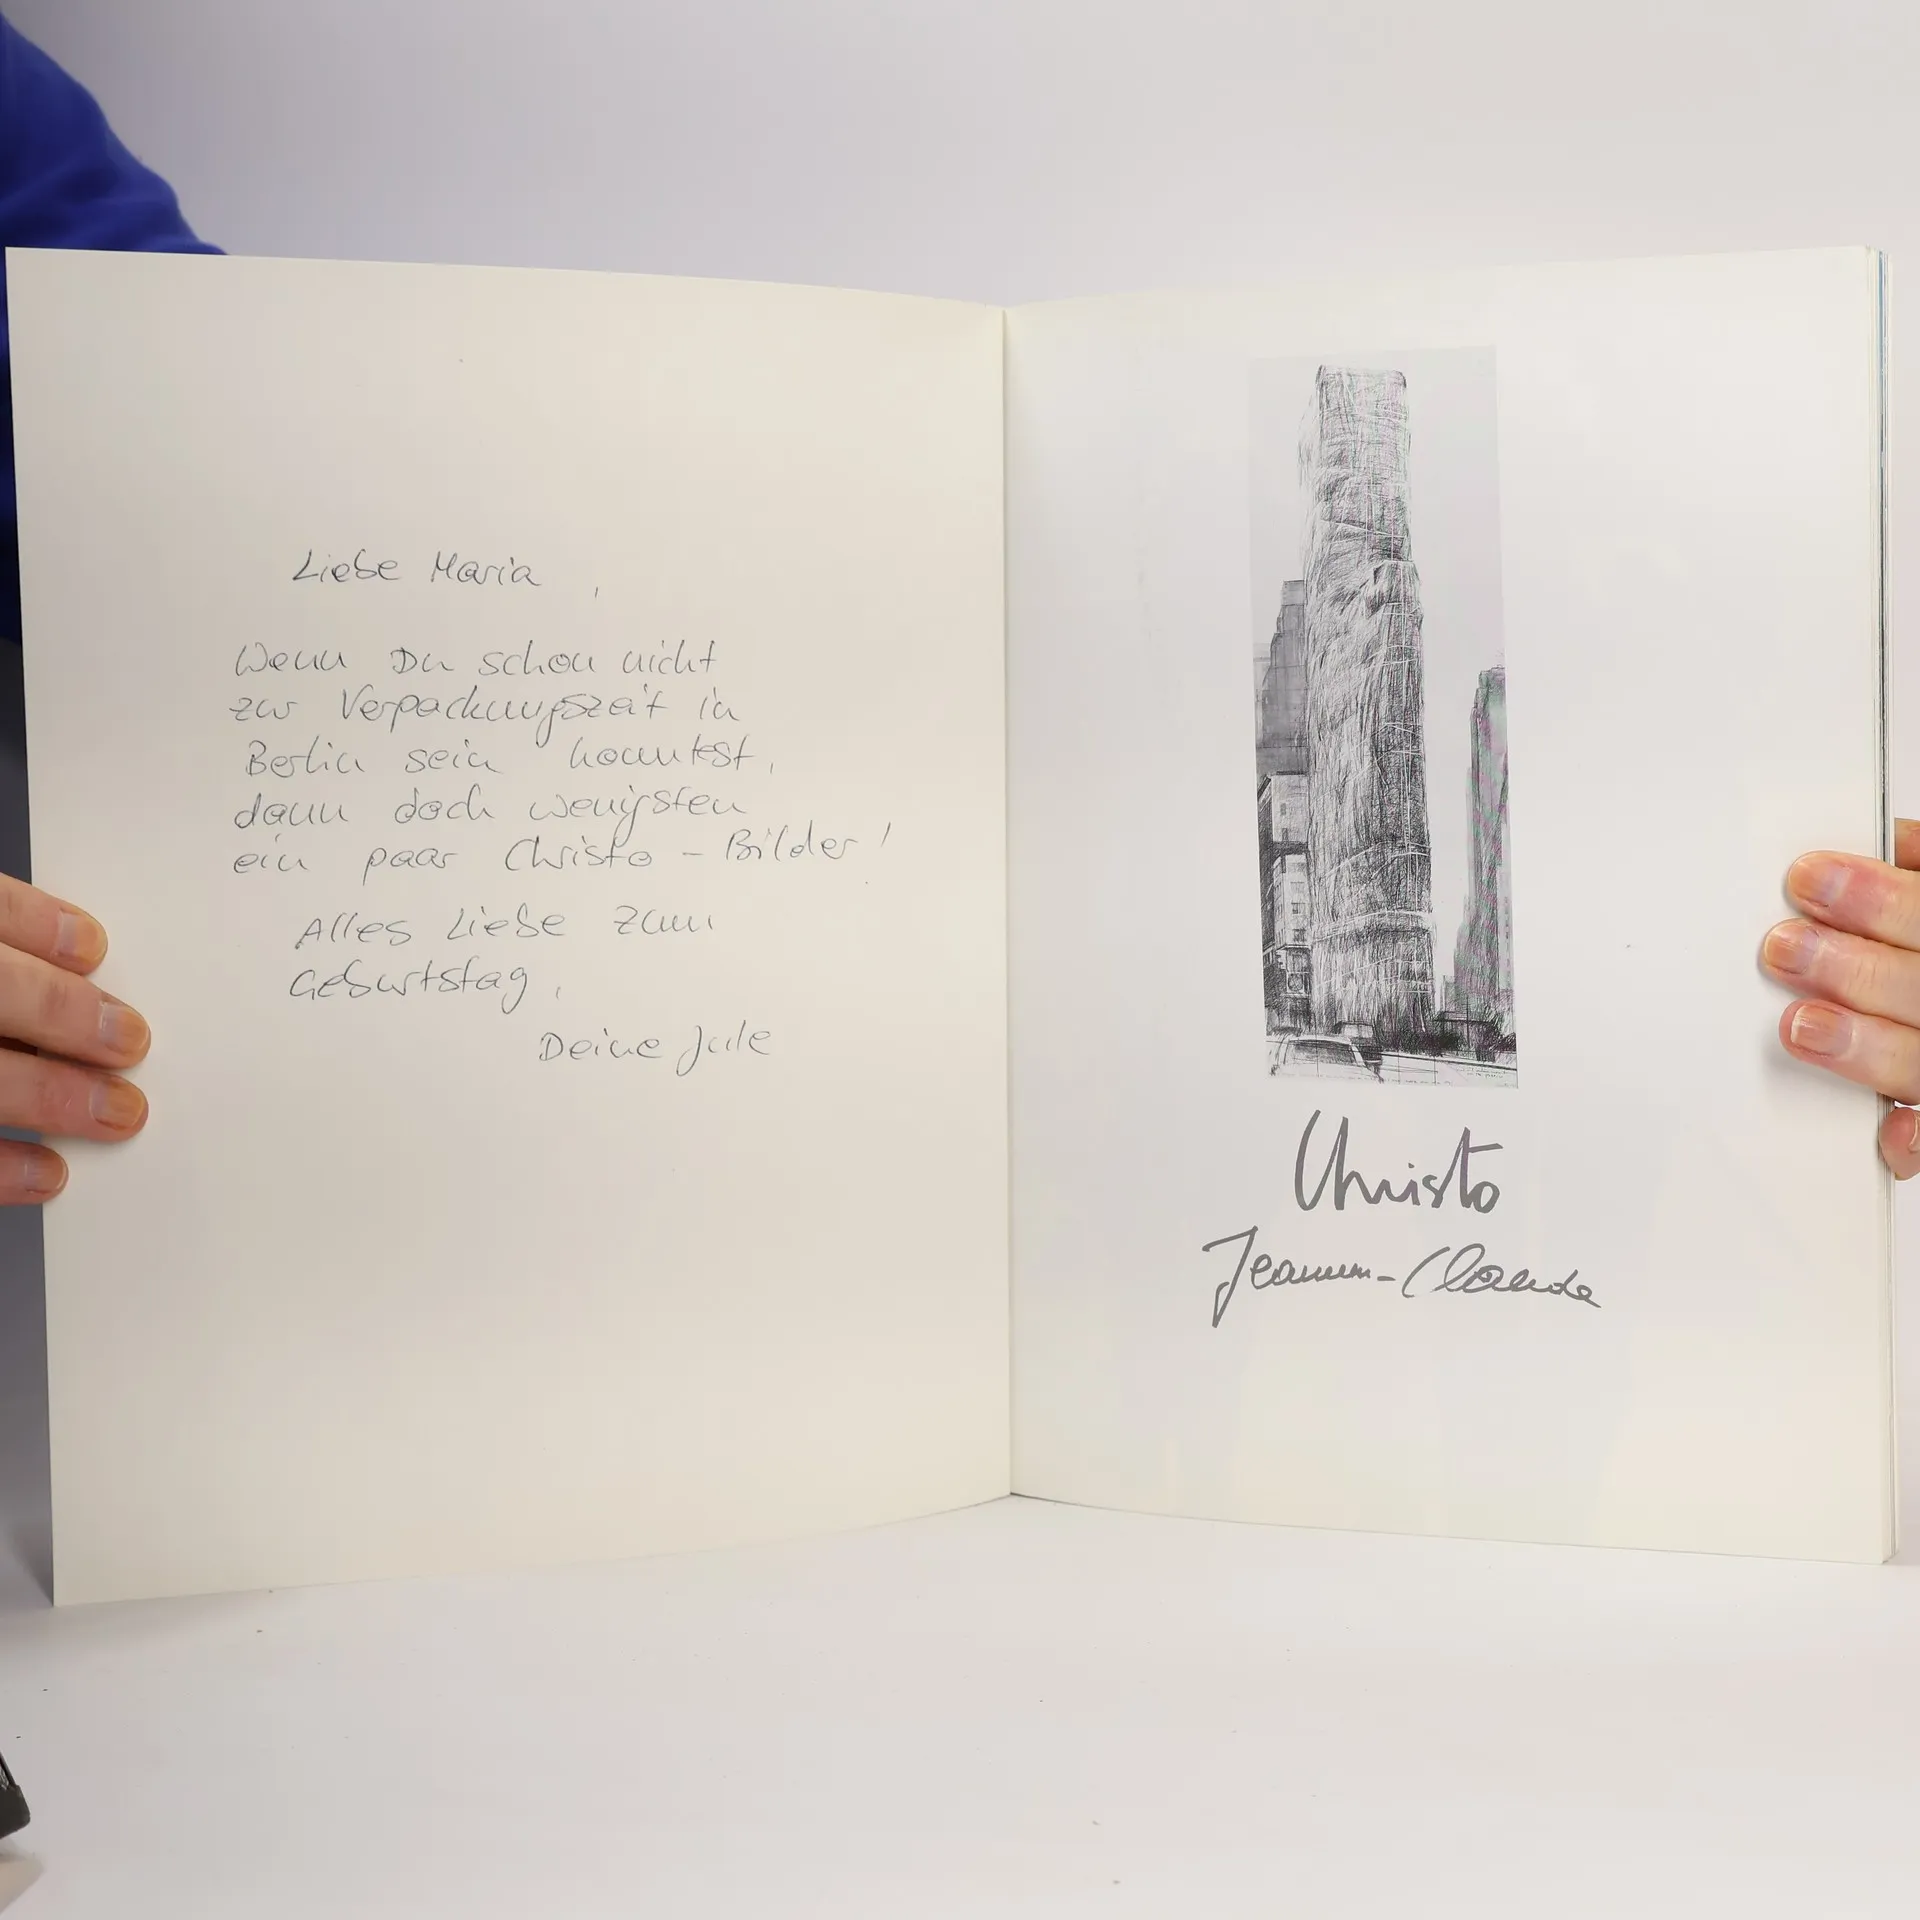 Liebe Maria,
Wenn Du schon nicht
zur Verpackungszeit in
Berlin sein konntest,
dann doch wenigsten
ein paar Christo - Bilder!
Alles Liebe zum
Geburtstag,
Deine Jule
Christo
Jeanne-Claude